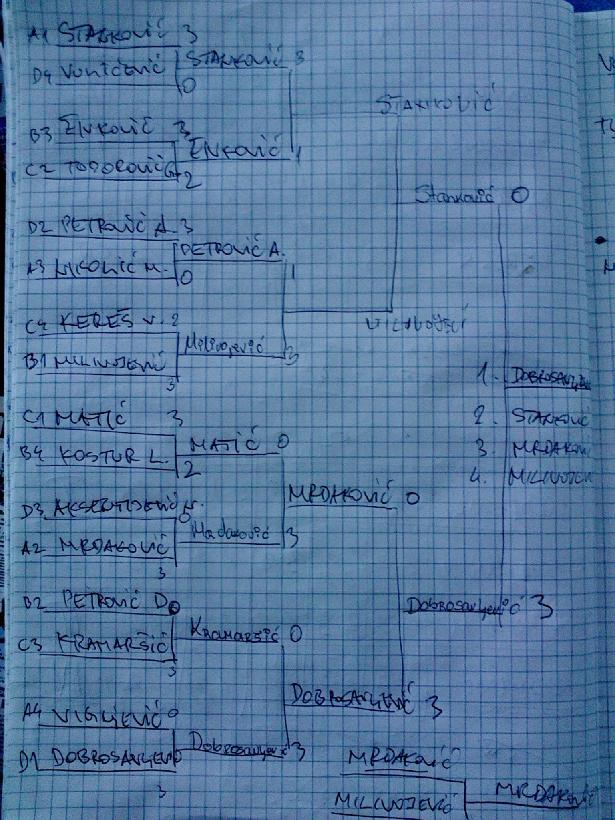 A1 STANKOVIĆ 3
STANKOVIĆ 3
D4 VUNIĆEVIĆ 0
STANKOVIĆ
B3 ŽIVKOVIĆ 3
ŽIVKOVIĆ 1
C2 TODOROVIĆ G. 2
Stanković 0
D2 PETROVIĆ A. 3
PETROVIĆ A. 1
A3 NIKOLIĆ M. 0
C4 KEREŠ V. 2
MILIVOJEVIĆ
Milivojević 3
B1 MILIVOJEVIĆ 3
1. DOBROSAVLJEV
2. STANKOVIĆ
3. MRDAKOV
4. MILIVOJEV
C1 MATIĆ 3
MATIĆ 0
B4 KOSTUR L. 2
MRDAKOVIĆ 0
D3 AKSENTIJEVIĆ N. 0
Mrdaković 3
A2 MRDAKOVIĆ 3
B2 PETROVIĆ D. 0
Dobrosavljević 3
Kramaršić 0
C3 KRAMARŠIĆ 3
DOBROSAVLJEVIĆ 3
A4 0
Dobrosavljević 3
D1 DOBROSAVLJEVIĆ 3
MRDAKOVIĆ
MRDAKOVIĆ
MILIVOJEVIĆ